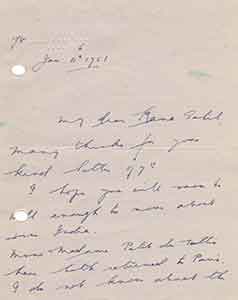 Jan 11th 1951
My dear
Many thanks for your
kind letter of 7th
I hope you will soon be
well enough to move about
over India.
Madame Petit
have both returned to Paris.
I do not know about the